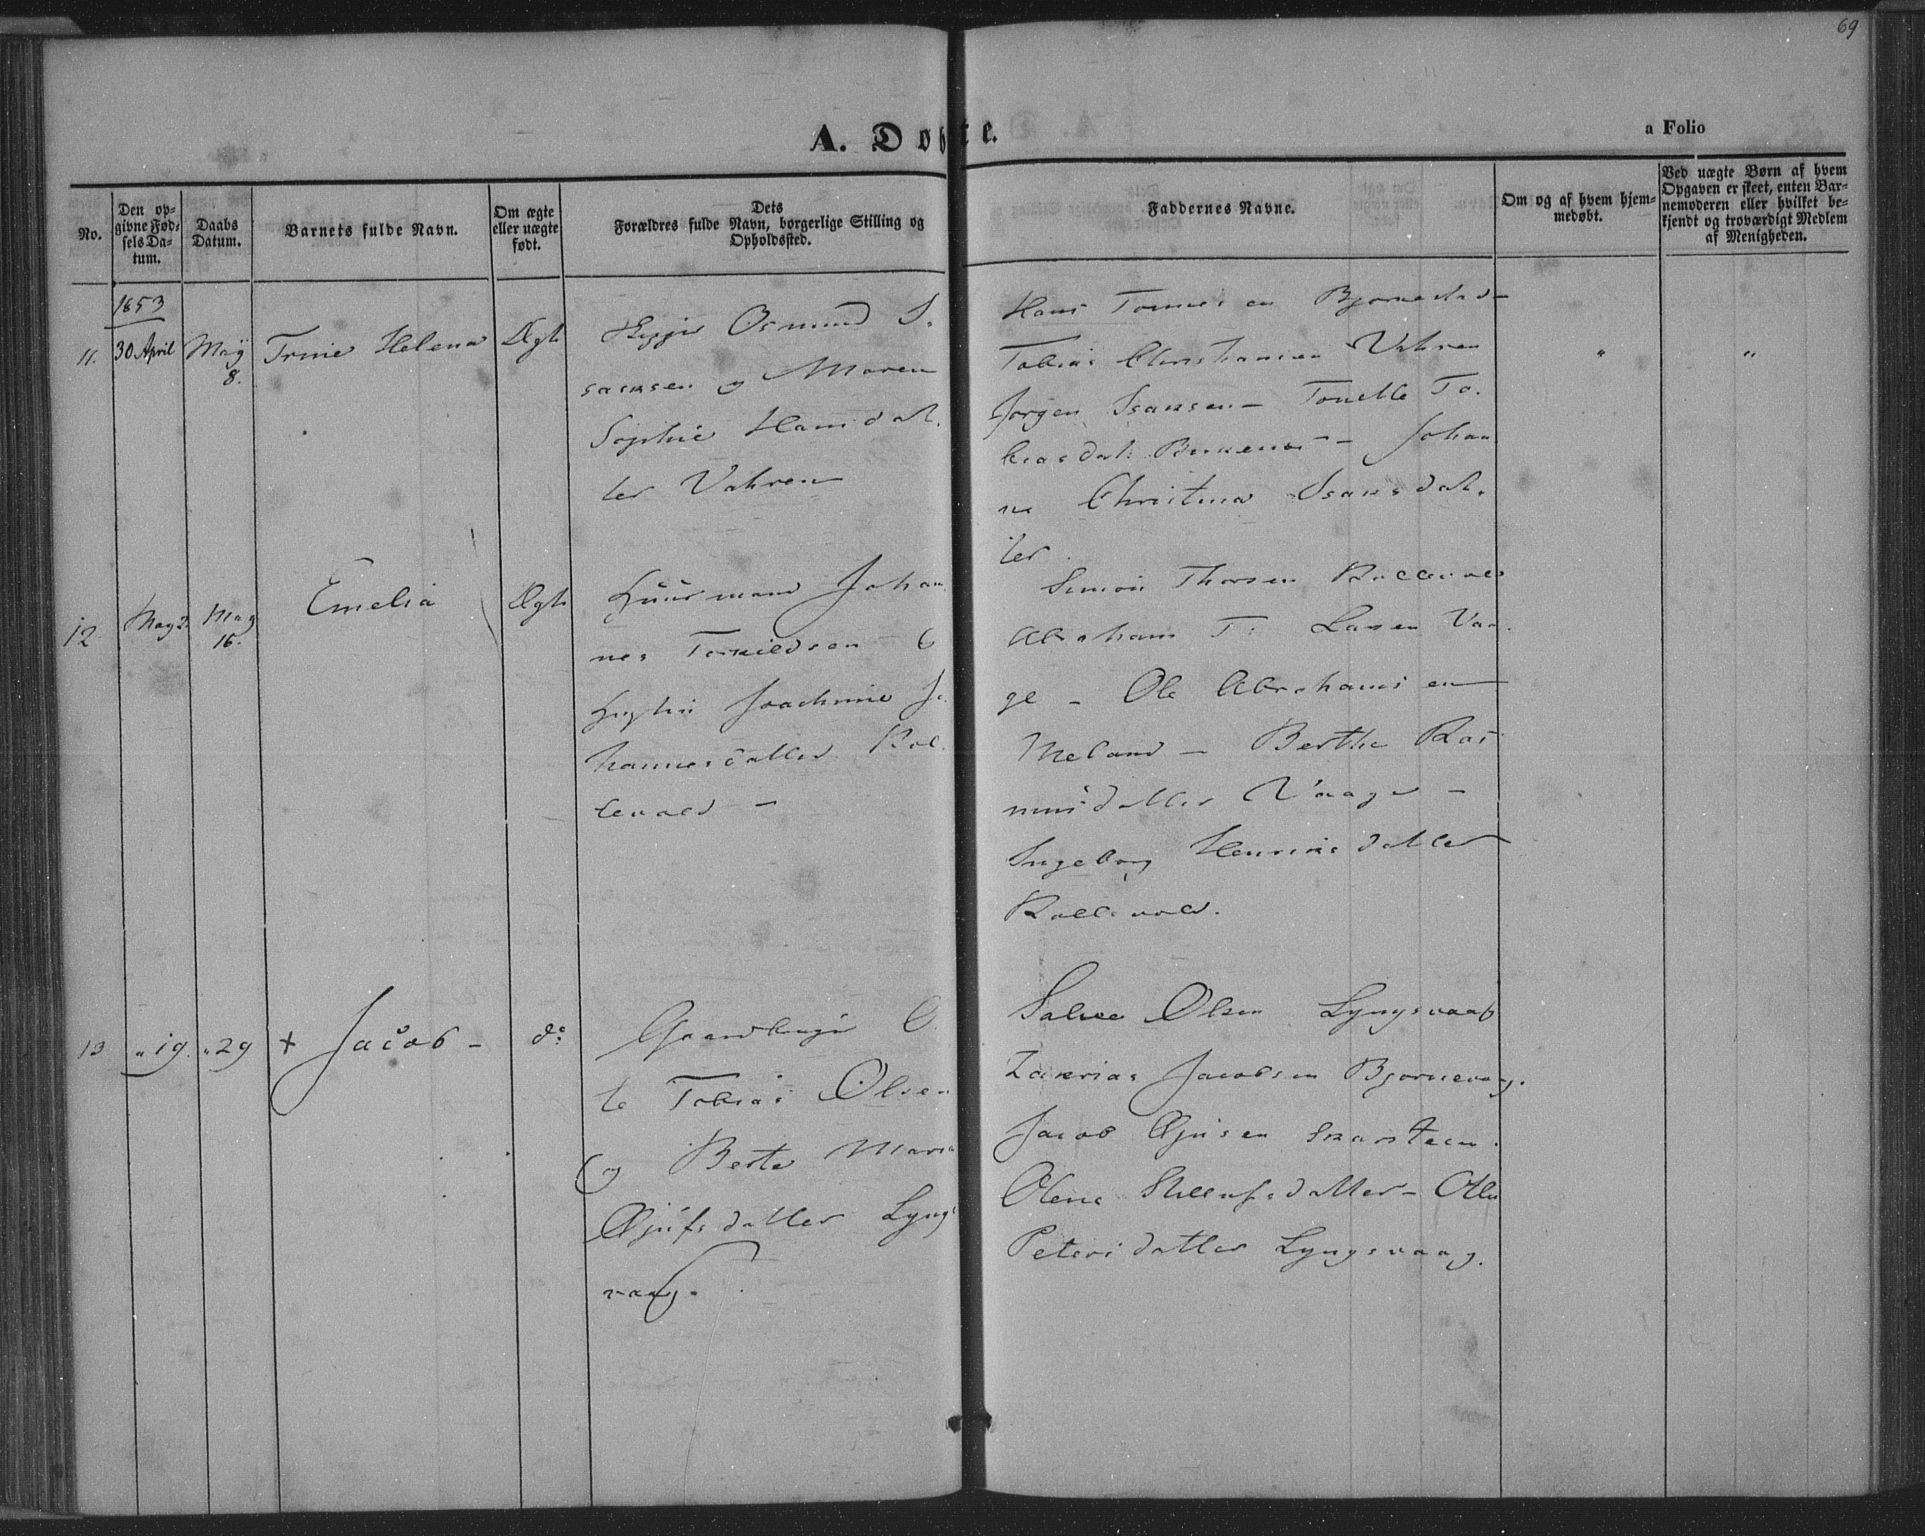 69
A. Døbte.
a Folio
No.
Den op-
givne Fød-
sels Da-
tum.
Daabs
Datum.
Barnets fulde Navn.
Om ægte
eller uægte
født.
Dets
Forældres fulde Navn, borgerlige Stilling og
Opholdssted.
Faddernes Navne.
Om og af hvem hjem-
medøbt.
Ved uægte Børn af hvem
Opgaven er skeet, enten Bar-
nemoderen eller hvilket be-
kjendt og troværdigt Medlem
af Menigheden.
1853
11. 30 April May 8. Trine Helena Ægte
Osmund I-
sacksen og Maren
Sophie Hansdat-
ter Vahren
Hans Tønnesen Bjørnestad
Tobias Christiansen Vahren
Jørgen Isaksen - Tonette To-
biasdat:
Johan
ne Christina Isaksdat-
ter
" "
12 May 2 May 16. Emelia Ægte
Huusmand Johan
nes Torkildsen &
Hustru Joachime Jo-
hannesdatter Rol-
levold -
Simon Thorsen Rollevold
Abraham T: Lassen Vaa-
ge - Ole Abrahamsen
Meland - Berthe Ras
musdatter Vaage -
Ingeborg Henriksdatter
Rollevold.
13 " 19. " 29 + Jacob - do:
Gaardbruger O
le Tobias Olsen
og Berte Maria
datter Lyngs
vaag.
Salve Olsen Lyngsvaag
Zakarias Jacobsen Bjørnevaag.
Jacob
Olene datter - Olle
Petersdatter Lyngsvaag.